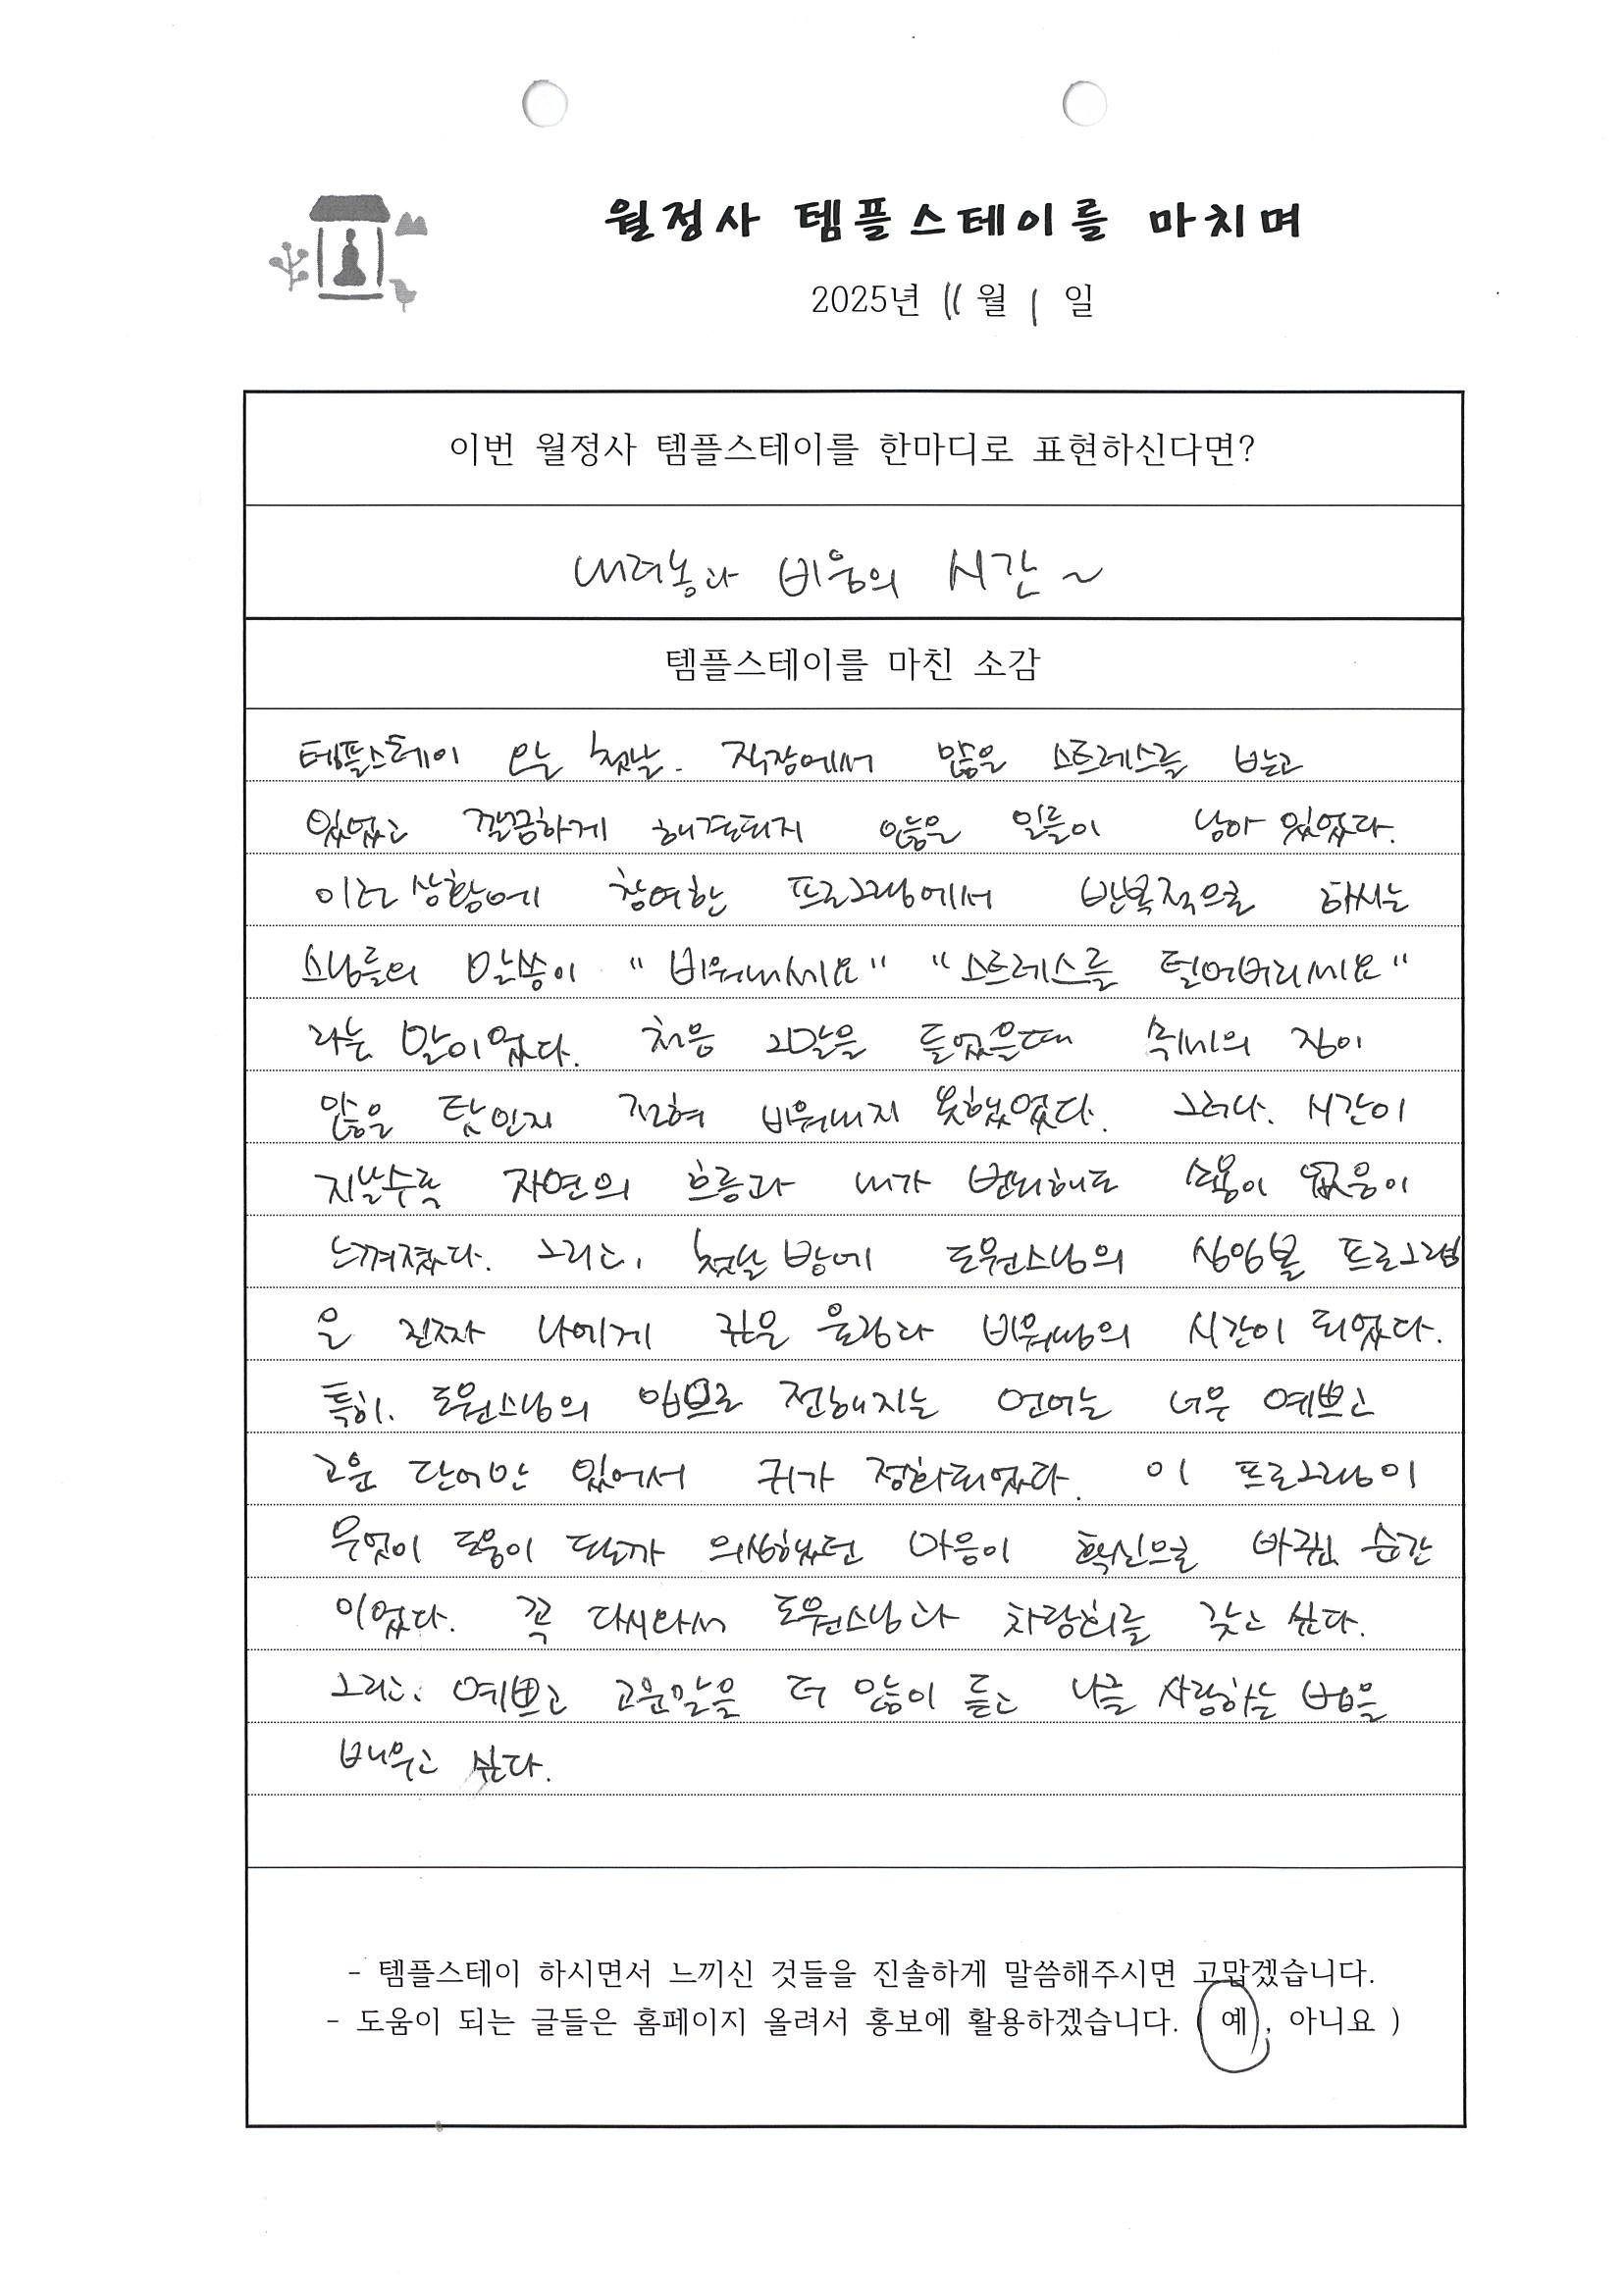 월정사 템플스테이를 마치며
2025년 11월 1일
이번 월정사 템플스테이를 한마디로 표현하신다면?
내려놓과 비움의 시간~
템플스테이를 마친 소감
템플스테이 오늘 첫날. 직장에서 많은 스트레스를 받고
있었고 깔끔하게 해결되지 않은 일들이 남아 있었다.
이런 상황에 참여한 프로그램에서 반복적으로 하시는
스님들의 말씀이 "비워내세요" "스트레스를 털어버리세요"
라는 말이었다. 처음 그말을 들었을때 속세의 짐이
많은 탓인지 전혀 비워내지 못했었다. 그러나. 시간이
지날수록 자연의 흐름과 내가 변화해도 소용이 없음이
느껴졌다. 그리고, 첫날 밤에 도원스님의 싱잉볼 프로그램
은 진짜 나에게 깊은 울림과 비워냄의 시간이 되었다.
특히. 도원스님의 입으로 전해지는 언어는 너무 예쁘고
고운 단어만 있어서 귀가 정화되었다. 이 프로그램이
무엇이 도움이 될까 의심했던 마음이 확신으로 바뀐 순간
이었다. 꼭 다시와서 도원스님과 차담회를 갖고 싶다.
그리고. 예쁘고 고운말을 더 많이 듣고 나를 사랑하는 법을
배우고 싶다.
- 템플스테이 하시면서 느끼신 것들을 진솔하게 말씀해주시면 고맙겠습니다.
- 도움이 되는 글들은 홈페이지 올려서 홍보에 활용하겠습니다. ( 예 , 아니요 )